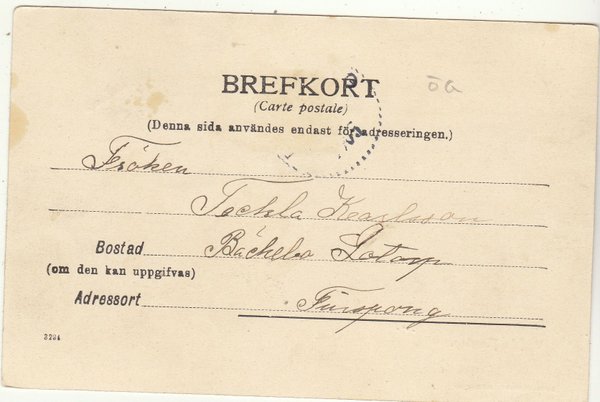 BREFKORT
(Carte postale)
(Denna sida användes endast för adresseringen.)
ÖG
Fröken
Teckla Karlsson
Bostad Bäckebo Gotorp
(om den kan uppgifvas)
Adressort Finspong
3234